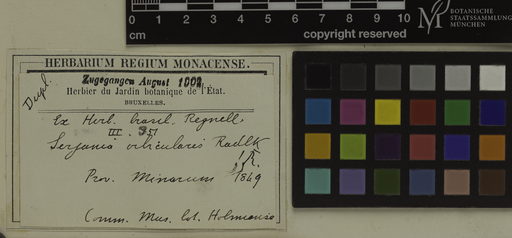 0 1 2 3 4 5 6 7 8 9 10
cm
copyright reserved
BOTANISCHE
STAATSSAMMLUNG
MÜNCHEN
HERBARIUM REGIUM MONACENSE.
Dupl.
Zugegangen August 1902
Herbier du Jardin botanique de l'État.
BRUXELLES.
Ex Herb. brasil. Regnell.
III. 351
Serjania orbicularis Radlk
Prov. Minarum 1869
Comm. Mus. bot. Holmiense